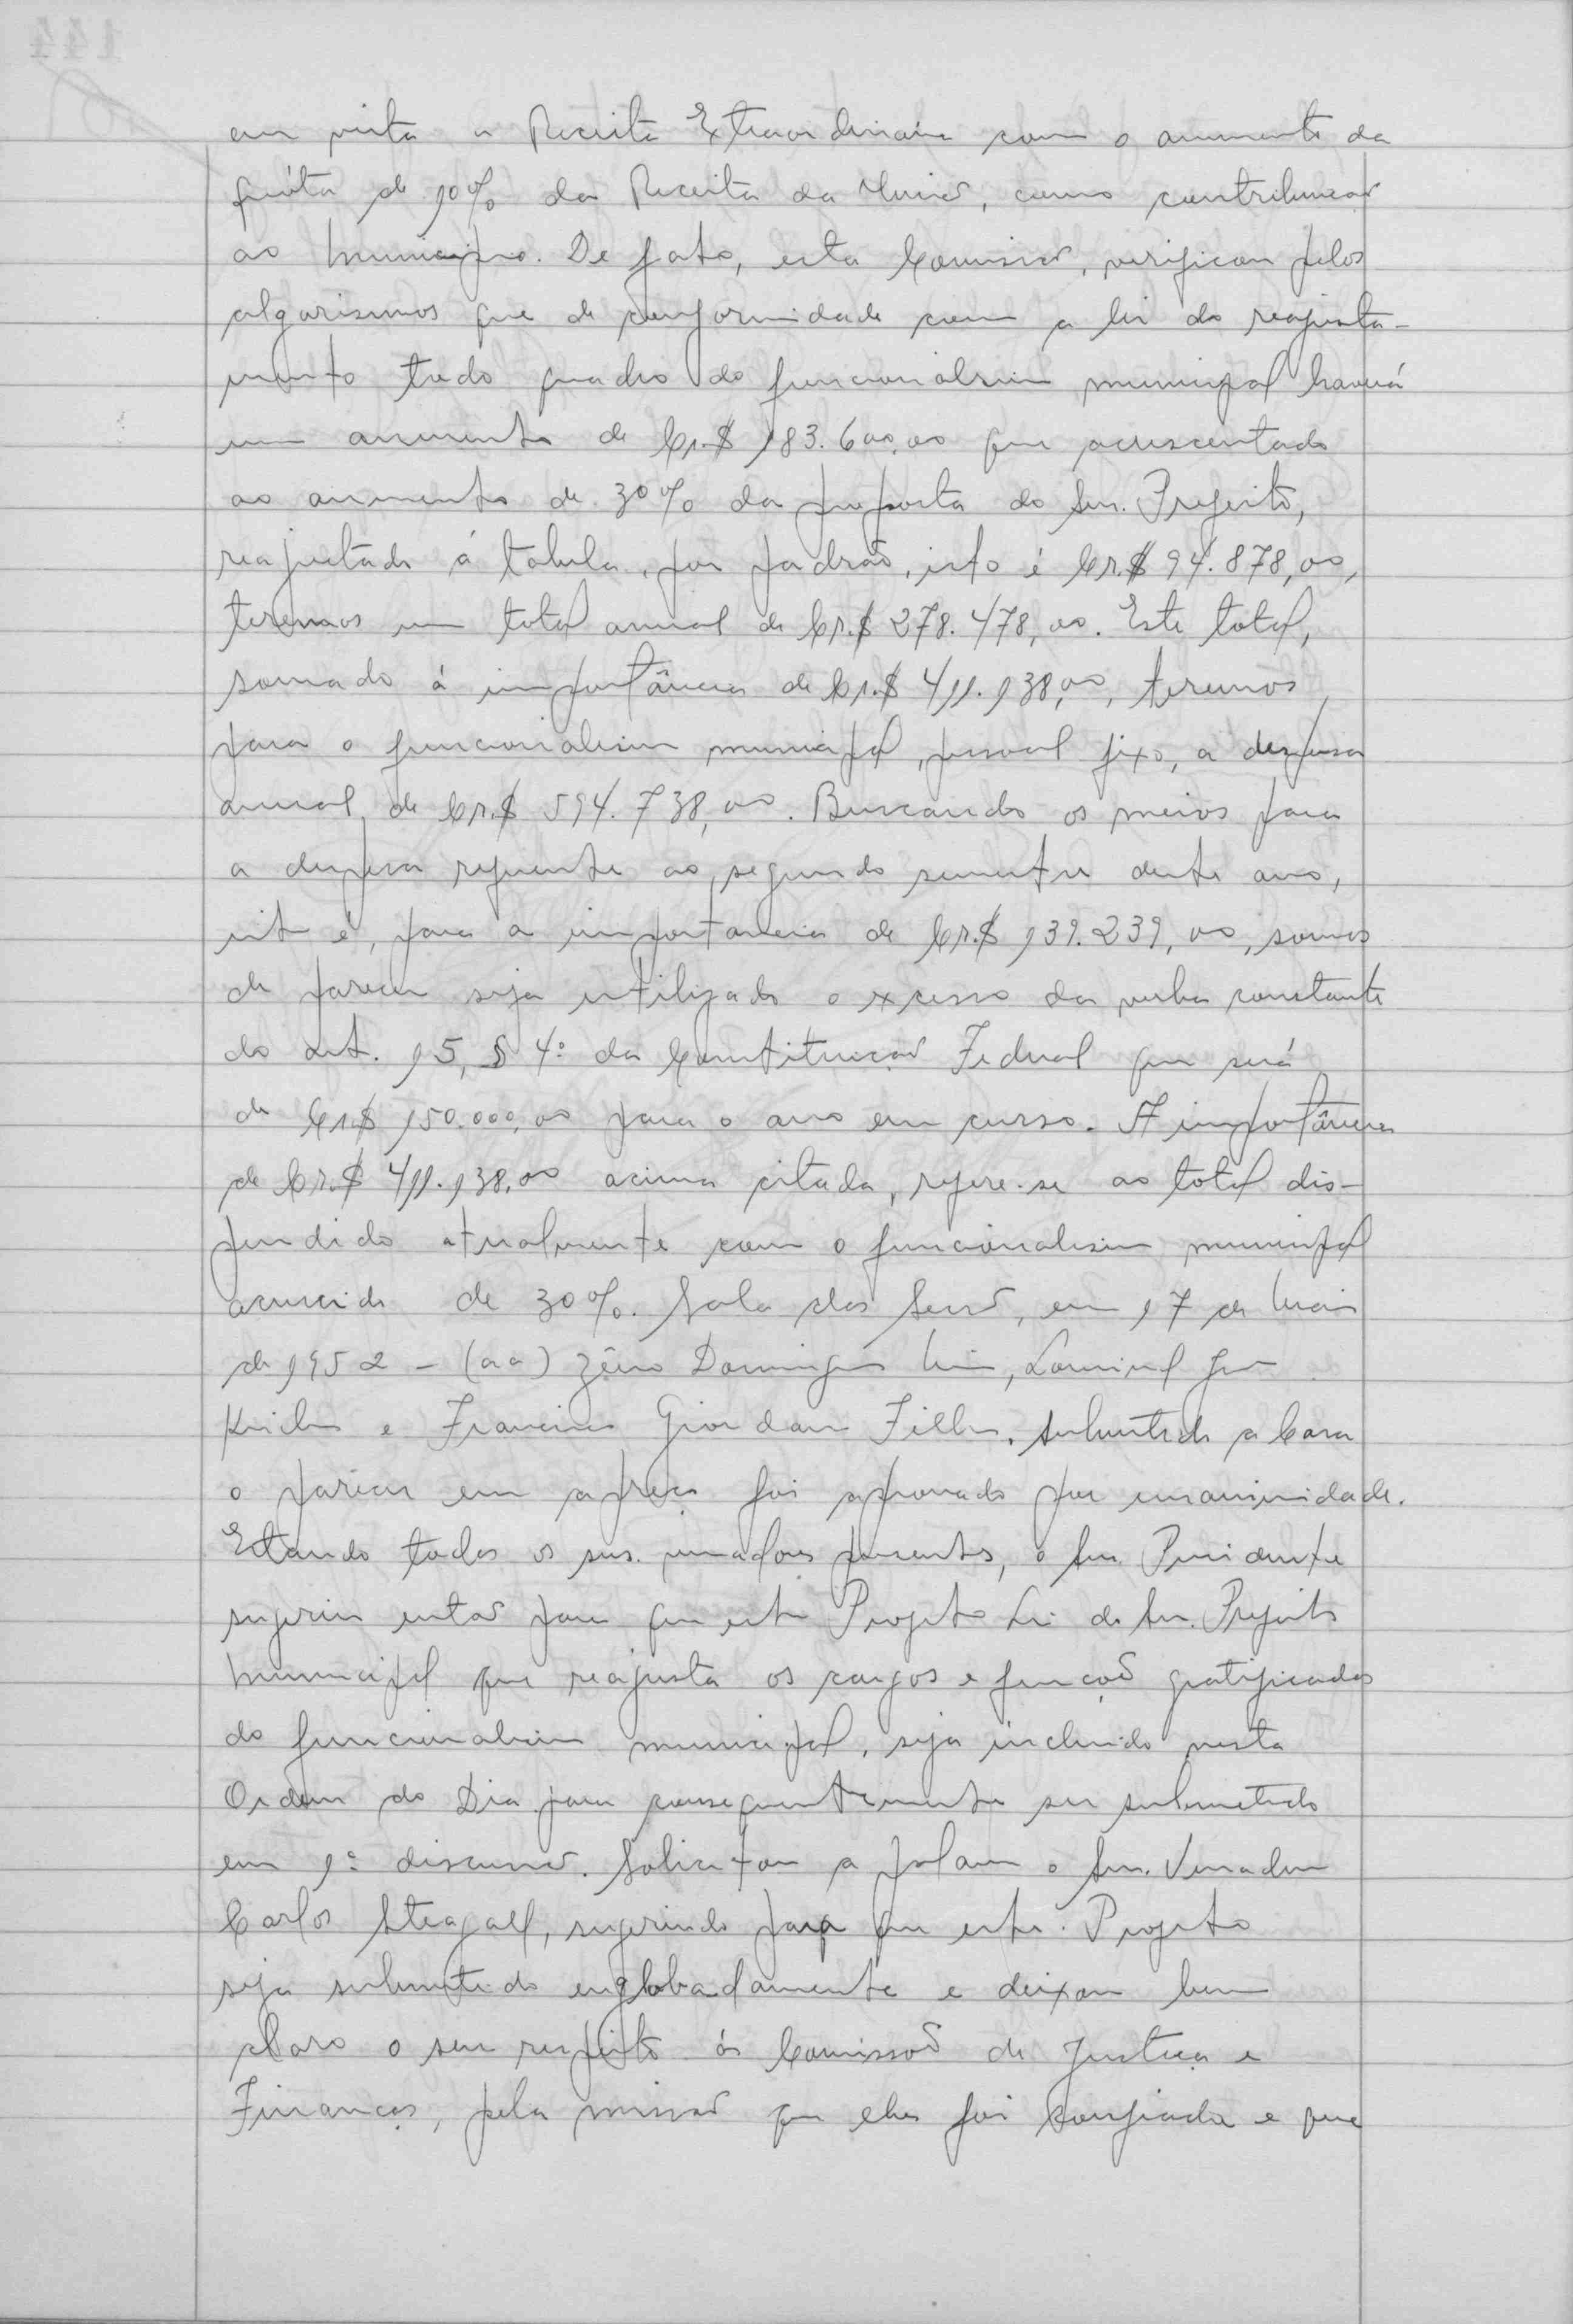 em vista a Receita Extraordinaria com o aumento da
quóta de 10% da Receita da União, como contribuição
ao Municipio. De fato, esta Comissão, verificou pelos
algarismos que de conformidade com a lei do reajusta-
mento todo quadro do funcionalismo municipal haverá
um aumento de Cr.$ 183.600,00 que acrescentado
ao aumento de 30% da proposta do Snr. Prefeito,
reajustado á tabela, por padrão, isto é Cr.$ 94.878,00,
teremos um total anual de Cr.$ 278.478,00. Este total,
somado á importância de Cr.$ 411.138,00, teremos,
para o funcionalismo municipal, pessoal fixo, a despesa
anual de Cr.$ 594.738,00. Buscando os meios para
a despesa referente ao segundo semestre deste ano,
isto é, para a importancia de Cr.$ 139.239,00, somos
de parecer seja utilizado o excesso da verba constante
do art. 15, § 4º da Constituição Federal que será
de Cr.$ 150.000,00 para o ano em curso. A importância
de Cr.$ 411.138,00 acima citada, refere-se ao total dis-
pendido atualmente com o funcionalismo municipal
acrescido de 30%. Sala das Sessões, em 17 de Maio
de 1952 - (aa) Zêno Domingues, Lourival
e Francisco Giordano Filho. Submetido a Casa
o parecer em apreço foi aprovado por unanimidade.
Estando todos os srs. vereadores presentes, o Snr. Presidente
sugeriu então para que este Projeto Lei do Snr. Prefeito
Municipal que reajusta os cargos e funções gratificadas
do funcionalismo municipal, seja incluido nesta
Ordem do Dia para consequentemente ser submetido
em 1ª discussão. Solicitou a palavra o Snr. Vereador
Carlos Steagall, sugerindo para que este Projeto
seja submetido englobadamente e deixou bem
claro o seu respeito ás Comissões de Justiça e
Finanças, pela missão que eles foi confiada e que